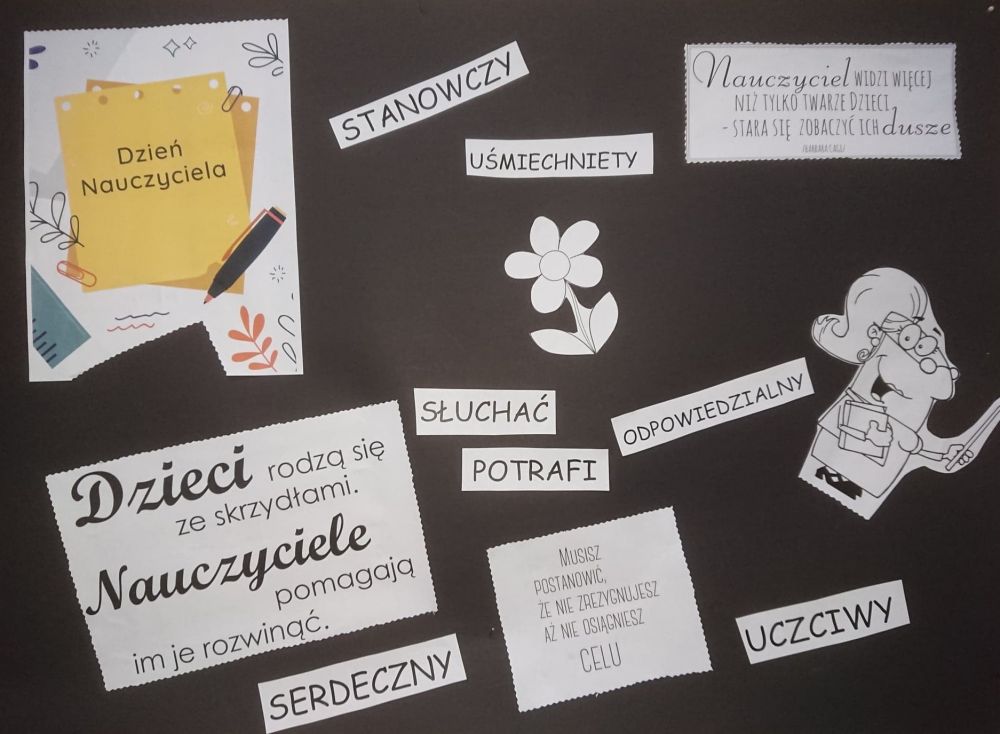 Dzień
Nauczyciela
STANOWCZY
UŚMIECHNIETY
Nauczyciel WIDZI WIĘCEJ
NIŻ TYLKO TWARZE DZIECI
- STARA SIĘ ZOBACZYĆ ICH dusze
SŁUCHAĆ
POTRAFI
ODPOWIEDZIALNY
Dzieci rodzą się
ze skrzydłami.
Nauczyciele
pomagają
im je rozwinąć.
MUSISZ
POSTANOWIĆ,
ŻE NIE ZREZYGNUJESZ
AŻ NIE OSIĄGNIESZ
CELU
SERDECZNY
UCZCIWY